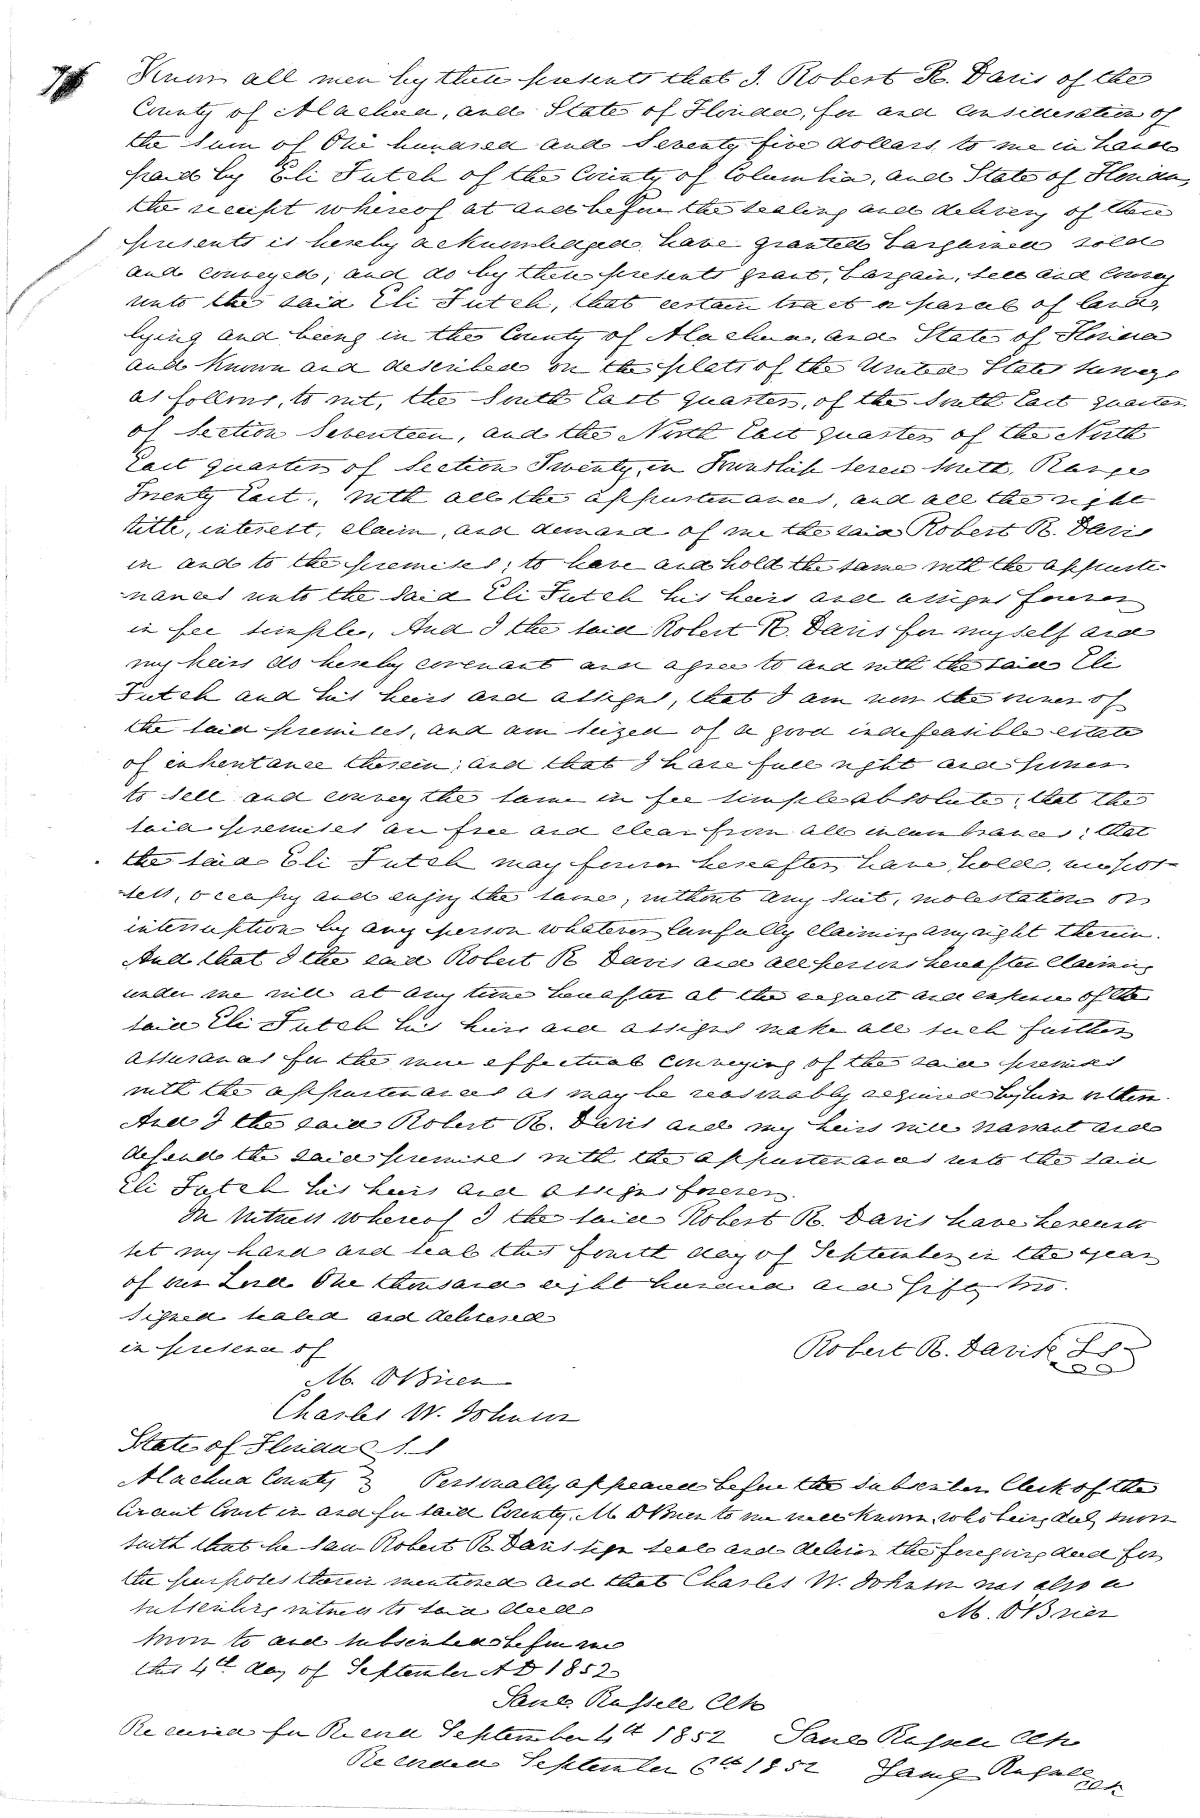 76
Know all men by these presents that I, Robert R. Davis of the
County of Alachua, and State of Florida, for and consideration of
the sum of One hundred and Seventy five dollars, to me in hand
paid by Eli Futch of the County of Columbia, and State of Florida,
the receipt whereof at and before the sealing and delivery of these
presents is hereby acknowledged, have granted bargained sold
and conveyed, and do by these presents grant, bargain, sell and convey
unto the said Eli Futch, that certain tract or parcel of land,
lying and being in the County of Alachua, and State of Florida
and known and described on the plats of the United States surveys
as follows, to wit, the South East quarter, of the South East quarter
of Section Seventeen, and the North East quarter of the North
East quarter of Section Twenty, in Township seven South, Range
Twenty East, with all the appurtenances, and all the right
title, interest, claim, and demand of me the said Robert R. Davis
in and to the premises; to have and hold the same with the appurte
-nances unto the said Eli Futch his heirs and assigns forever
in fee simple. And I the said Robert R. Davis for myself and
my heirs do hereby covenant and agree to and with the said Eli
Futch and his heirs and assigns, that I am now the owner of
the said premises, and am seized of a good indefeasible estate
of inheritance therein; and that I have full right and power
to sell and convey the same in fee simple absolute; that the
said premises are free and clear from all incumbrances; that
the said Eli Futch may forever hereafter have, hold, use pos-
-sess, occupy and enjoy the same, without any suit, molestation or
interruption by any person whatever lawfully claiming any right therein.
And that I the said Robert R Davis and all persons hereafter claiming
under me will at any time hereafter at the request and expense of the
said Eli Futch his heirs and assigns make all such further
assurances for the more effectual conveying of the said premises
with the appurtenances as may be reasonably required by him or them.
And I the said Robert R. Davis and my heirs will warrant and
defend the said premises with the appurtenances unto the said
Eli Futch his heirs and assigns forever.
In witness whereof I the said Robert R. Davis have hereunto
set my hand and seal this fourth day of September in the year
of our Lord One thousand eight hundred and fifty two.
Signed sealed and delivered
in presence of
Robert R. Davis LS
M. O'Brien
Charles W. Johnson
State of Florida S.S
Alachua County } Personally appeared before the subscriber Clerk of the
Circuit Court in and for said County, M. O'Brien to me well known, who being duly sworn
saith that he saw Robert R. Davis sign seal and deliver the foregoing deed for
the purposes therein mentioned and that Charles W. Johnson was also a
subscribing witness to said deed
M. O'Brien
Sworn to and subscribed before me
this 4th day of September AD 1852
Saml Russell Clk
Received for Record September 4th 1852 Saml Russell Clk
Recorded September 6th 1852 Saml Russell Clk